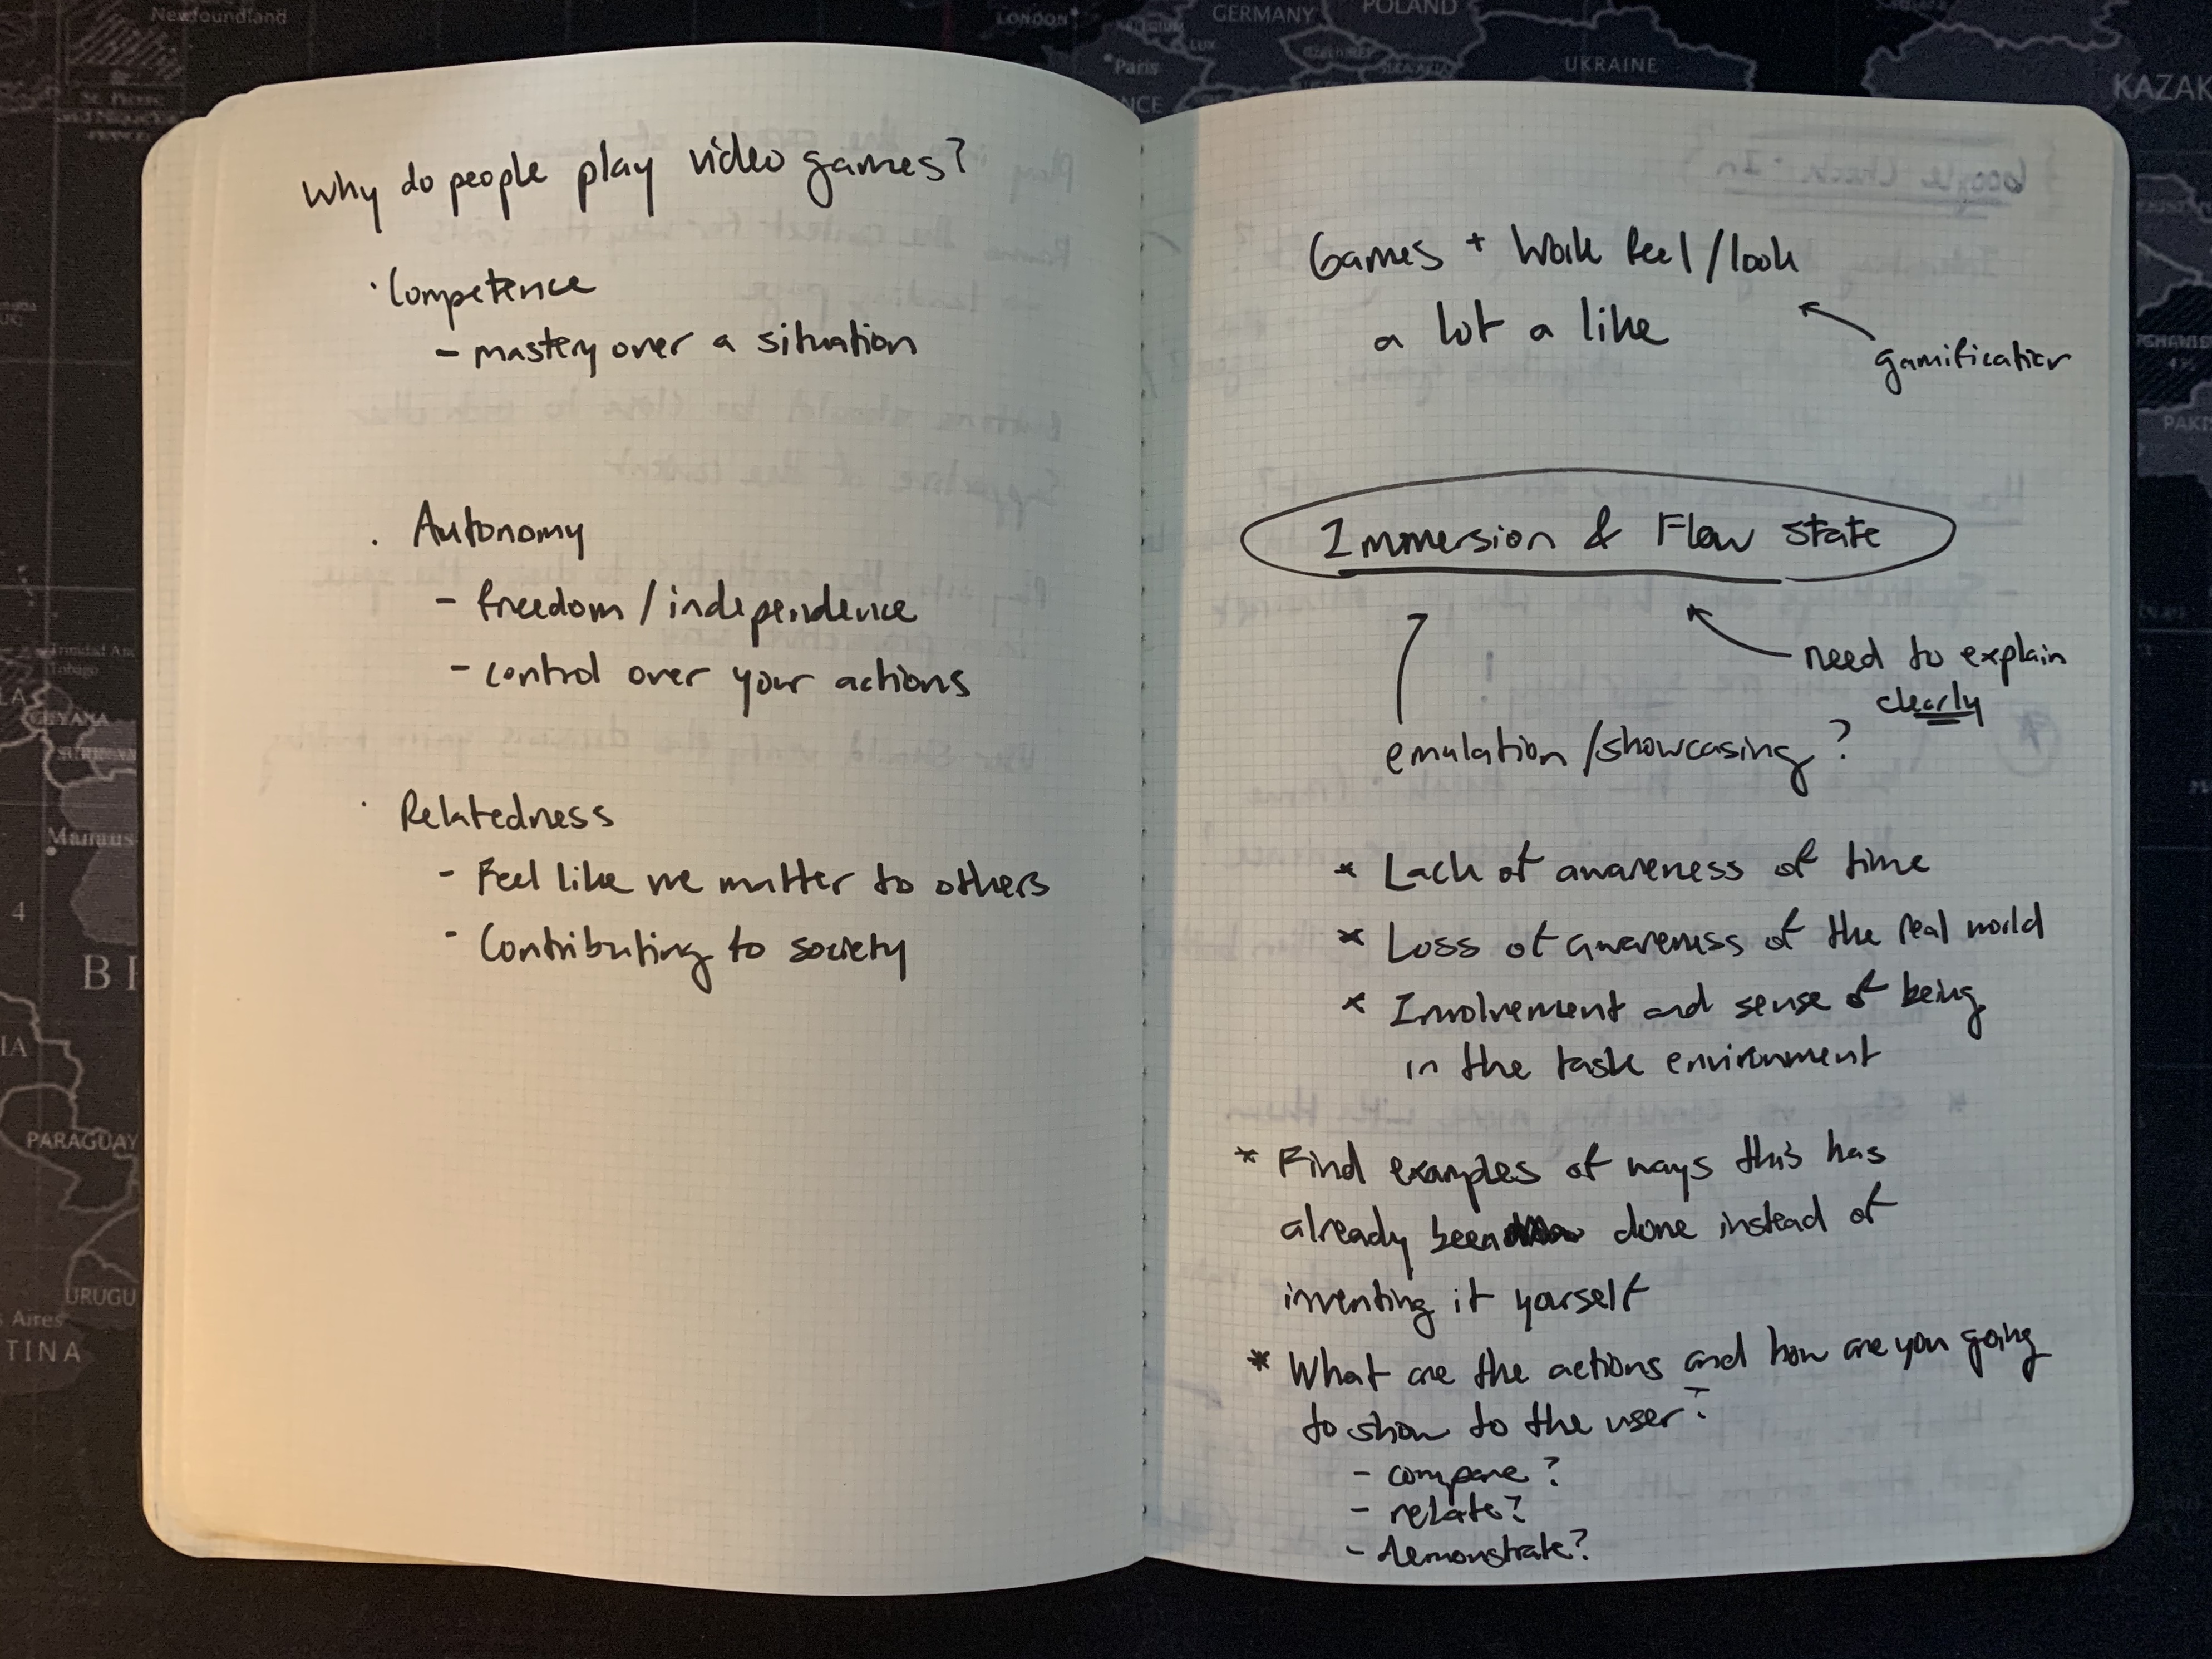 Why do people play video games?
· Competence
- mastery over a situation
· Autonomy
- freedom / independence
- control over your actions
· Relatedness
- Feel like we matter to others
- Contributing to society
Games + Work feel/look
a lot a like
gamification
Immersion & Flow state
need to explain
clearly
emulation/showcasing?
* Lack of awareness of time
* Loss of awareness of the real world
* Involvement and sense of being
in the task environment
* Find examples of ways this has
already been done instead of
inventing it yourself
* What are the actions and how are you going
to show to the user?
- compare?
- relate?
- demonstrate?
Newfoundland
LONDON
GERMANY
POLAND
LUX
Paris
UKRAINE
KAZAK
NCE
PAKIS
GUYANA
Manaus
4
BI
IA
PARAGUAY
URUGU
Aires
TINA